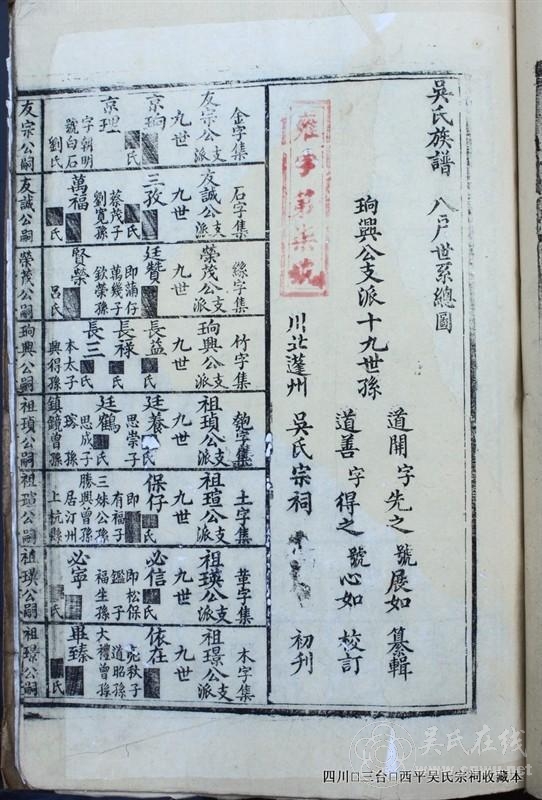 吳氏族譜 八戶世系總圖
珦興公支派十九世孫
道開 字先之 號展如 纂輯
道善 字得之 號心如 校訂
川北蓬州 吳氏宗祠 初刊
金字集
友宗公支派
九世
京珦
氏
京理
字朝明
號白石
劉氏
友宗公嗣
石字集
友誠公支派
九世
三孜
氏
蔡茂子
劉寬孫
萬福
氏
友誠公嗣
絲字集
榮茂公支派
九世
廷贊
即蒲仔
萬幾子
欽榮孫
賢榮
呂氏
榮茂公嗣
竹字集
珦興公支派
九世
長益
氏
長祿
氏
長三
氏
本太子
興得孫
珦興公嗣
匏字集
祖瑱公支派
九世
廷養
氏
思崇子
廷鶴
氏
思成子
琢孫
鎮鏡曾孫
祖瑱公嗣
土字集
祖瑄公支派
九世
保仔
即
有福子
三妹公孫
勝興曾孫
居汀州
上杭縣
祖瑄公嗣
革字集
祖瑛公支派
九世
必信
氏
即松保
鑑子
福生孫
必寧
氏
祖瑛公嗣
木字集
祖璟公支派
九世
依在
氏
亮秋子
道昭孫
大禮曾孫
畢臻
氏
祖璟公嗣
吴氏在线
四川□三台□西平吴氏宗祠收藏本